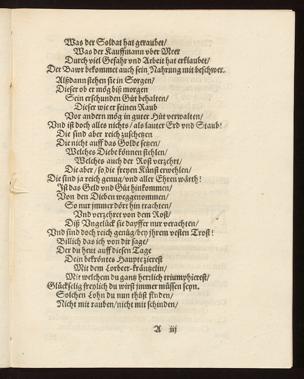 Was der Soldat hat geraubet/
Was der Kauffmann vber Meer
Durch viel Gefahr vnd Arbeit hat erklaubet/
Der Bawr bekommet auch sein Nahrung mit beschwer.
Alßdann stehen sie in Sorgen/
Dieser ob er mög biß morgen
Sein erschunden Gůt behalten/
Dieser wie er seinen Raub
Vor andern mög in guter Hůt verwalten/
Vnd ist doch alles nichts/ als lauter Erd vnd Staub!
Die sind aber reich zuschetzen
Die nicht auff das Goldt setzen/
Welches Diebe können stehlen/
Welches auch der Rost verzehrt/
Die aber/ so die freyen Künst erwehlen/
Die sind ja reich genug/ vnd aller Ehren wärth!
Ist das Geld vnd Gůt hinkommen/
Von den Dieben weggenommen/
So nur jmmer dort hin trachten/
Vnd verzehret von dem Rost/
Diß Vnglück sie dapffer nur verachten/
Vnd sind doch reich genůg/ bey jhrem vesten Trost!
Billich das ich von dir sage/
Der du heut auff diesen Tage
Dein bekröntes Hauptzierest
Mit dem Lorbeer-kräntzelin/
Mit welchem du gantz herrlich triumphierest/
Glückselig freylich du wirst jmmer müssen seyn.
Solchen Lohn du nun thůst finden/
Nicht mit rauben/ nicht mit schinden/
A iij